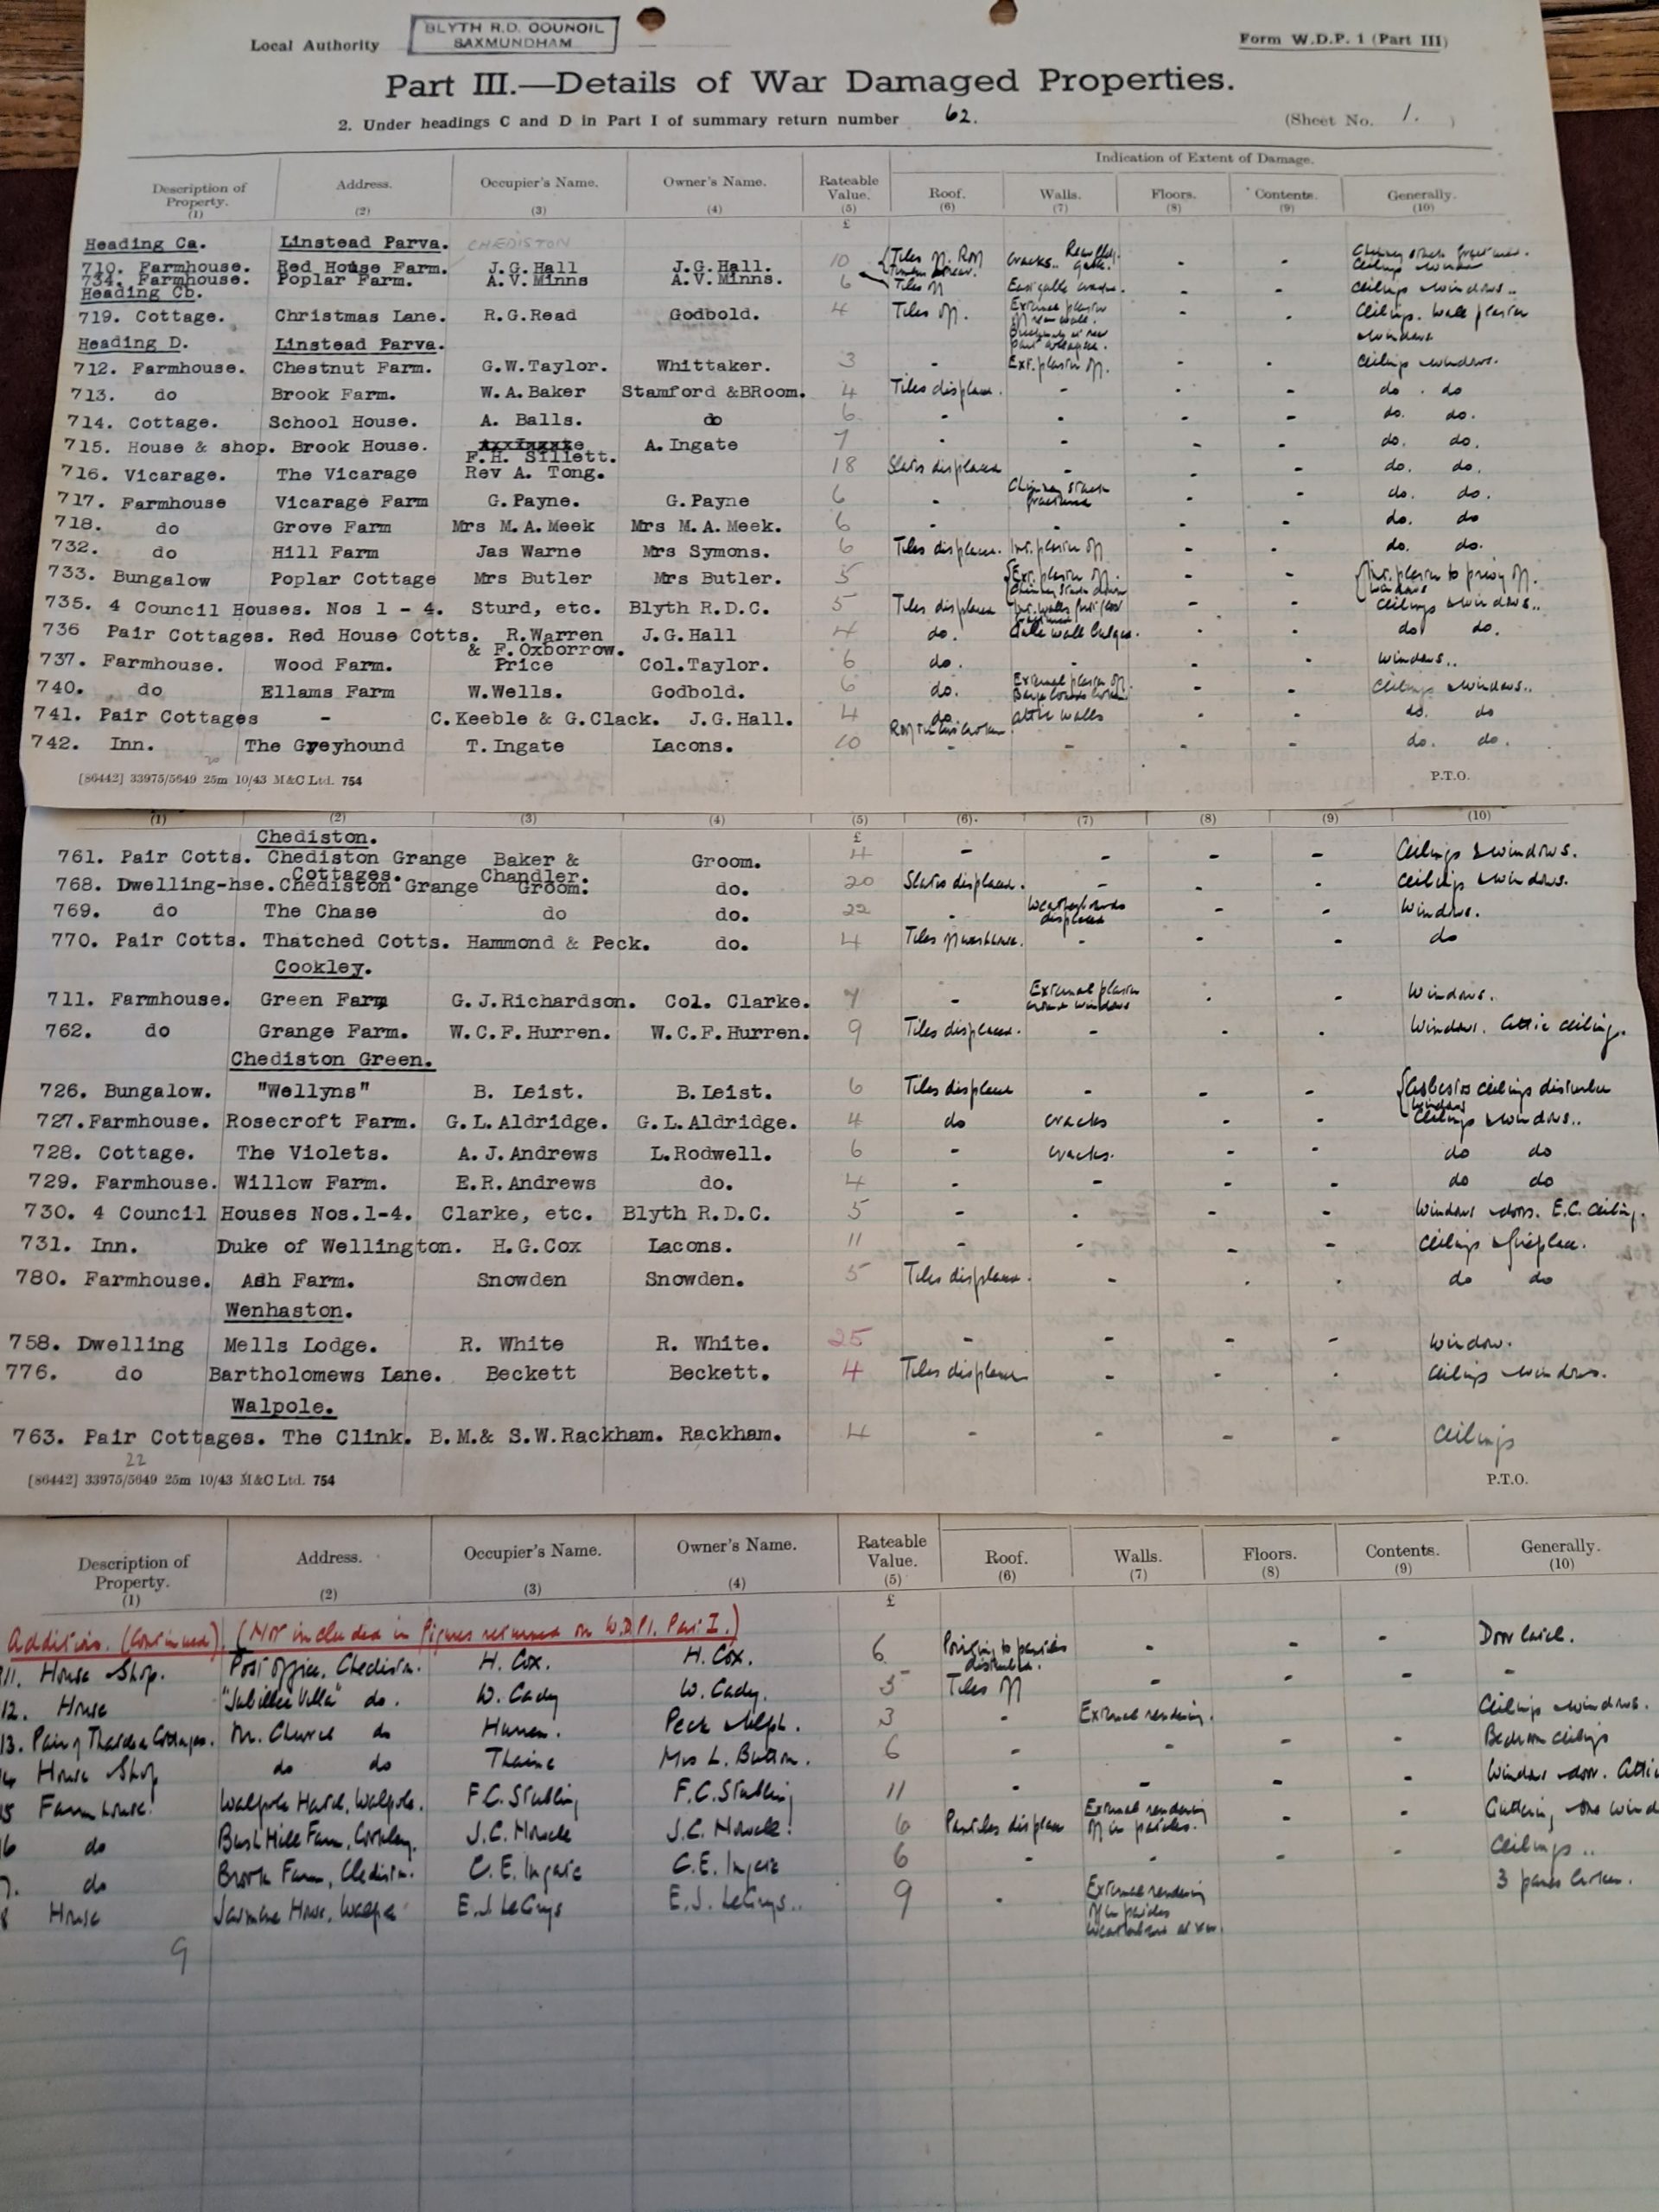 Local Authority BLYTH R.D. COUNCIL SAXMUNDHAM Form W.D.P. 1 (Part III)
Part III.—Details of War Damaged Properties.
2. Under headings C and D in Part I of summary return number 62. (Sheet No. 1. )
Indication of Extent of Damage.
Description of Property. (1) Address. (2) Occupier's Name. (3) Owner's Name. (4) Rateable Value. (5) Roof. (6) Walls. (7) Floors. (8) Contents. (9) Generally. (10)
£
Heading Ca. Linstead Parva. CHEDISTON
710. Farmhouse. Red House Farm. J.G.Hall J.G.Hall. 10 Tiles off. Roof cracks. - - Ceilings & windows
734. Farmhouse. Poplar Farm. A.V.Minns A.V.Minns. 6 Tiles off East gable cracked. - - Ceilings & windows..
Heading Cb.
719. Cottage. Christmas Lane. R.G.Read Godbold. 4 Tiles off. External plaster off rear wall. - - Ceilings. Wall plaster & windows
Heading D. Linstead Parva.
712. Farmhouse. Chestnut Farm. G.W.Taylor. Whittaker. 3 - Ext. plaster off. - - Ceilings & windows.
713. do Brook Farm. W.A.Baker Stamford &BRoom. 4 Tiles displaced. - - - do. do
714. Cottage. School House. A. Balls. do 6 - - - - do. do.
715. House & shop. Brook House. F.H. Sillett. A.Ingate 7 - - - - do. do.
716. Vicarage. The Vicarage Rev A. Tong. 18 Slates displaced - - - do. do.
717. Farmhouse Vicarage Farm G.Payne. G.Payne 6 - Chimney stack fractured - - do. do.
718. do Grove Farm Mrs M.A.Meek Mrs M.A.Meek. 6 - - - - do. do
732. do Hill Farm Jas Warne Mrs Symons. 6 Tiles displaced. Int. plaster off - - do. do.
733. Bungalow Poplar Cottage Mrs Butler Mrs Butler. 5 Ext. plaster off. Chimney stack down - - Int. plaster to privy off. windows
735. 4 Council Houses. Nos 1 - 4. Sturd, etc. Blyth R.D.C. 5 Tiles displaced Int. walls first floor - - Ceilings & windows..
736 Pair Cottages. Red House Cotts. R.Warren & F.Oxborrow. J.G.Hall 4 do. Gable wall bulged. - - do do.
737. Farmhouse. Wood Farm. Price Col.Taylor. 6 do. - - - Windows..
740. do Ellams Farm W.Wells. Godbold. 6 do. External plaster off. Barge boards broken - - Ceilings & windows..
741. Pair Cottages - C.Keeble & G.Clack. J.G.Hall. 4 do. Attic walls - - do. do
742. Inn. The Greyhound T.Ingate Lacons. 10 - - - - do. do.
[86442] 33975/5649 25m 10/43 M&C Ltd. 754 P.T.O.
(1) (2) (3) (4) (5) (6) (7) (8) (9) (10)
Chediston. £
761. Pair Cotts. Chediston Grange Cottages. Baker & Chandler. Groom. 4 - - - - Ceilings & windows.
768. Dwelling-hse. Chediston Grange Groom. do. 20 Slates displaced. - - - Ceilings & windows.
769. do The Chase do do. 22 - Weatherboards displaced - - Windows.
770. Pair Cotts. Thatched Cotts. Hammond & Peck. do. 4 Tiles off washhouse. - - - do
Cookley.
711. Farmhouse. Green Farm G.J.Richardson. Col. Clarke. 7 - External plaster around windows - - Windows.
762. do Grange Farm. W.C.F.Hurren. W.C.F.Hurren. 9 Tiles displaced. - - - Windows. Attic ceiling.
Chediston Green.
726. Bungalow. "Wellyns" B. Leist. B.Leist. 6 Tiles displaced - - - Asbestos ceilings disturbed windows
727.Farmhouse. Rosecroft Farm. G.L.Aldridge. G.L.Aldridge. 4 do cracks - - Ceilings & windows..
728. Cottage. The Violets. A.J.Andrews L.Rodwell. 6 - cracks. - - do do
729. Farmhouse. Willow Farm. E.R.Andrews do. 4 - - - - do do
730. 4 Council Houses Nos.1-4. Clarke, etc. Blyth R.D.C. 5 - - - - Windows & doors. E.C. Ceiling.
731. Inn. Duke of Wellington. H.G.Cox Lacons. 11 - - - - Ceilings & fireplace.
780. Farmhouse. Ash Farm. Snowden Snowden. 5 Tiles displaced. - - - do do
Wenhaston.
758. Dwelling Mells Lodge. R. White R. White. 25 - - - - Window.
776. do Bartholomews Lane. Beckett Beckett. 4 Tiles displaced - - - Ceilings & windows.
Walpole.
763. Pair Cottages. The Clink. B.M.& S.W.Rackham. Rackham. 4 - - - - Ceilings
22
[86442] 33975/5649 25m 10/43 M&C Ltd. 754 P.T.O.
Description of Property. (1) Address. (2) Occupier's Name. (3) Owner's Name. (4) Rateable Value. (5) Roof. (6) Walls. (7) Floors. (8) Contents. (9) Generally. (10)
£
Additions. (Continued). (Not included in figures returned on W.D.P.1. Part I.)
11. House & Shop. Post Office, Chediston. H. Cox. H. Cox. 6 Pointing to pantiles disturbed. - - - Door latch.
12. House "Jubilee Villa" do. W. Cady W. Cady. 5 Tiles off - - - -
13. Pair of Thatched Cottages. Nr. Church do Hurren. Peck 3 - External rendering. - - Ceilings & windows.
House & Shop do do Thaine Mrs L. Button. 6 - - - - Bedroom ceilings
5 Farmhouse. Walpole Hall, Walpole. F.C. Stubbing F.C. Stubbing 11 - - - - Window & door. Attic
6 do Bush Hill Farm, Cookley. 6 Pantiles displaced External rendering off in patches. - - Guttering & one wind
7. do Brook Farm, Chediston. C.E. Ingate C.E. Ingate 6 - - - - Ceilings..
8 House Jasmine House, Walpole E.J. LeGrys E.J. LeGrys.. 9 - External rendering off in patches 3 panes broken.
9